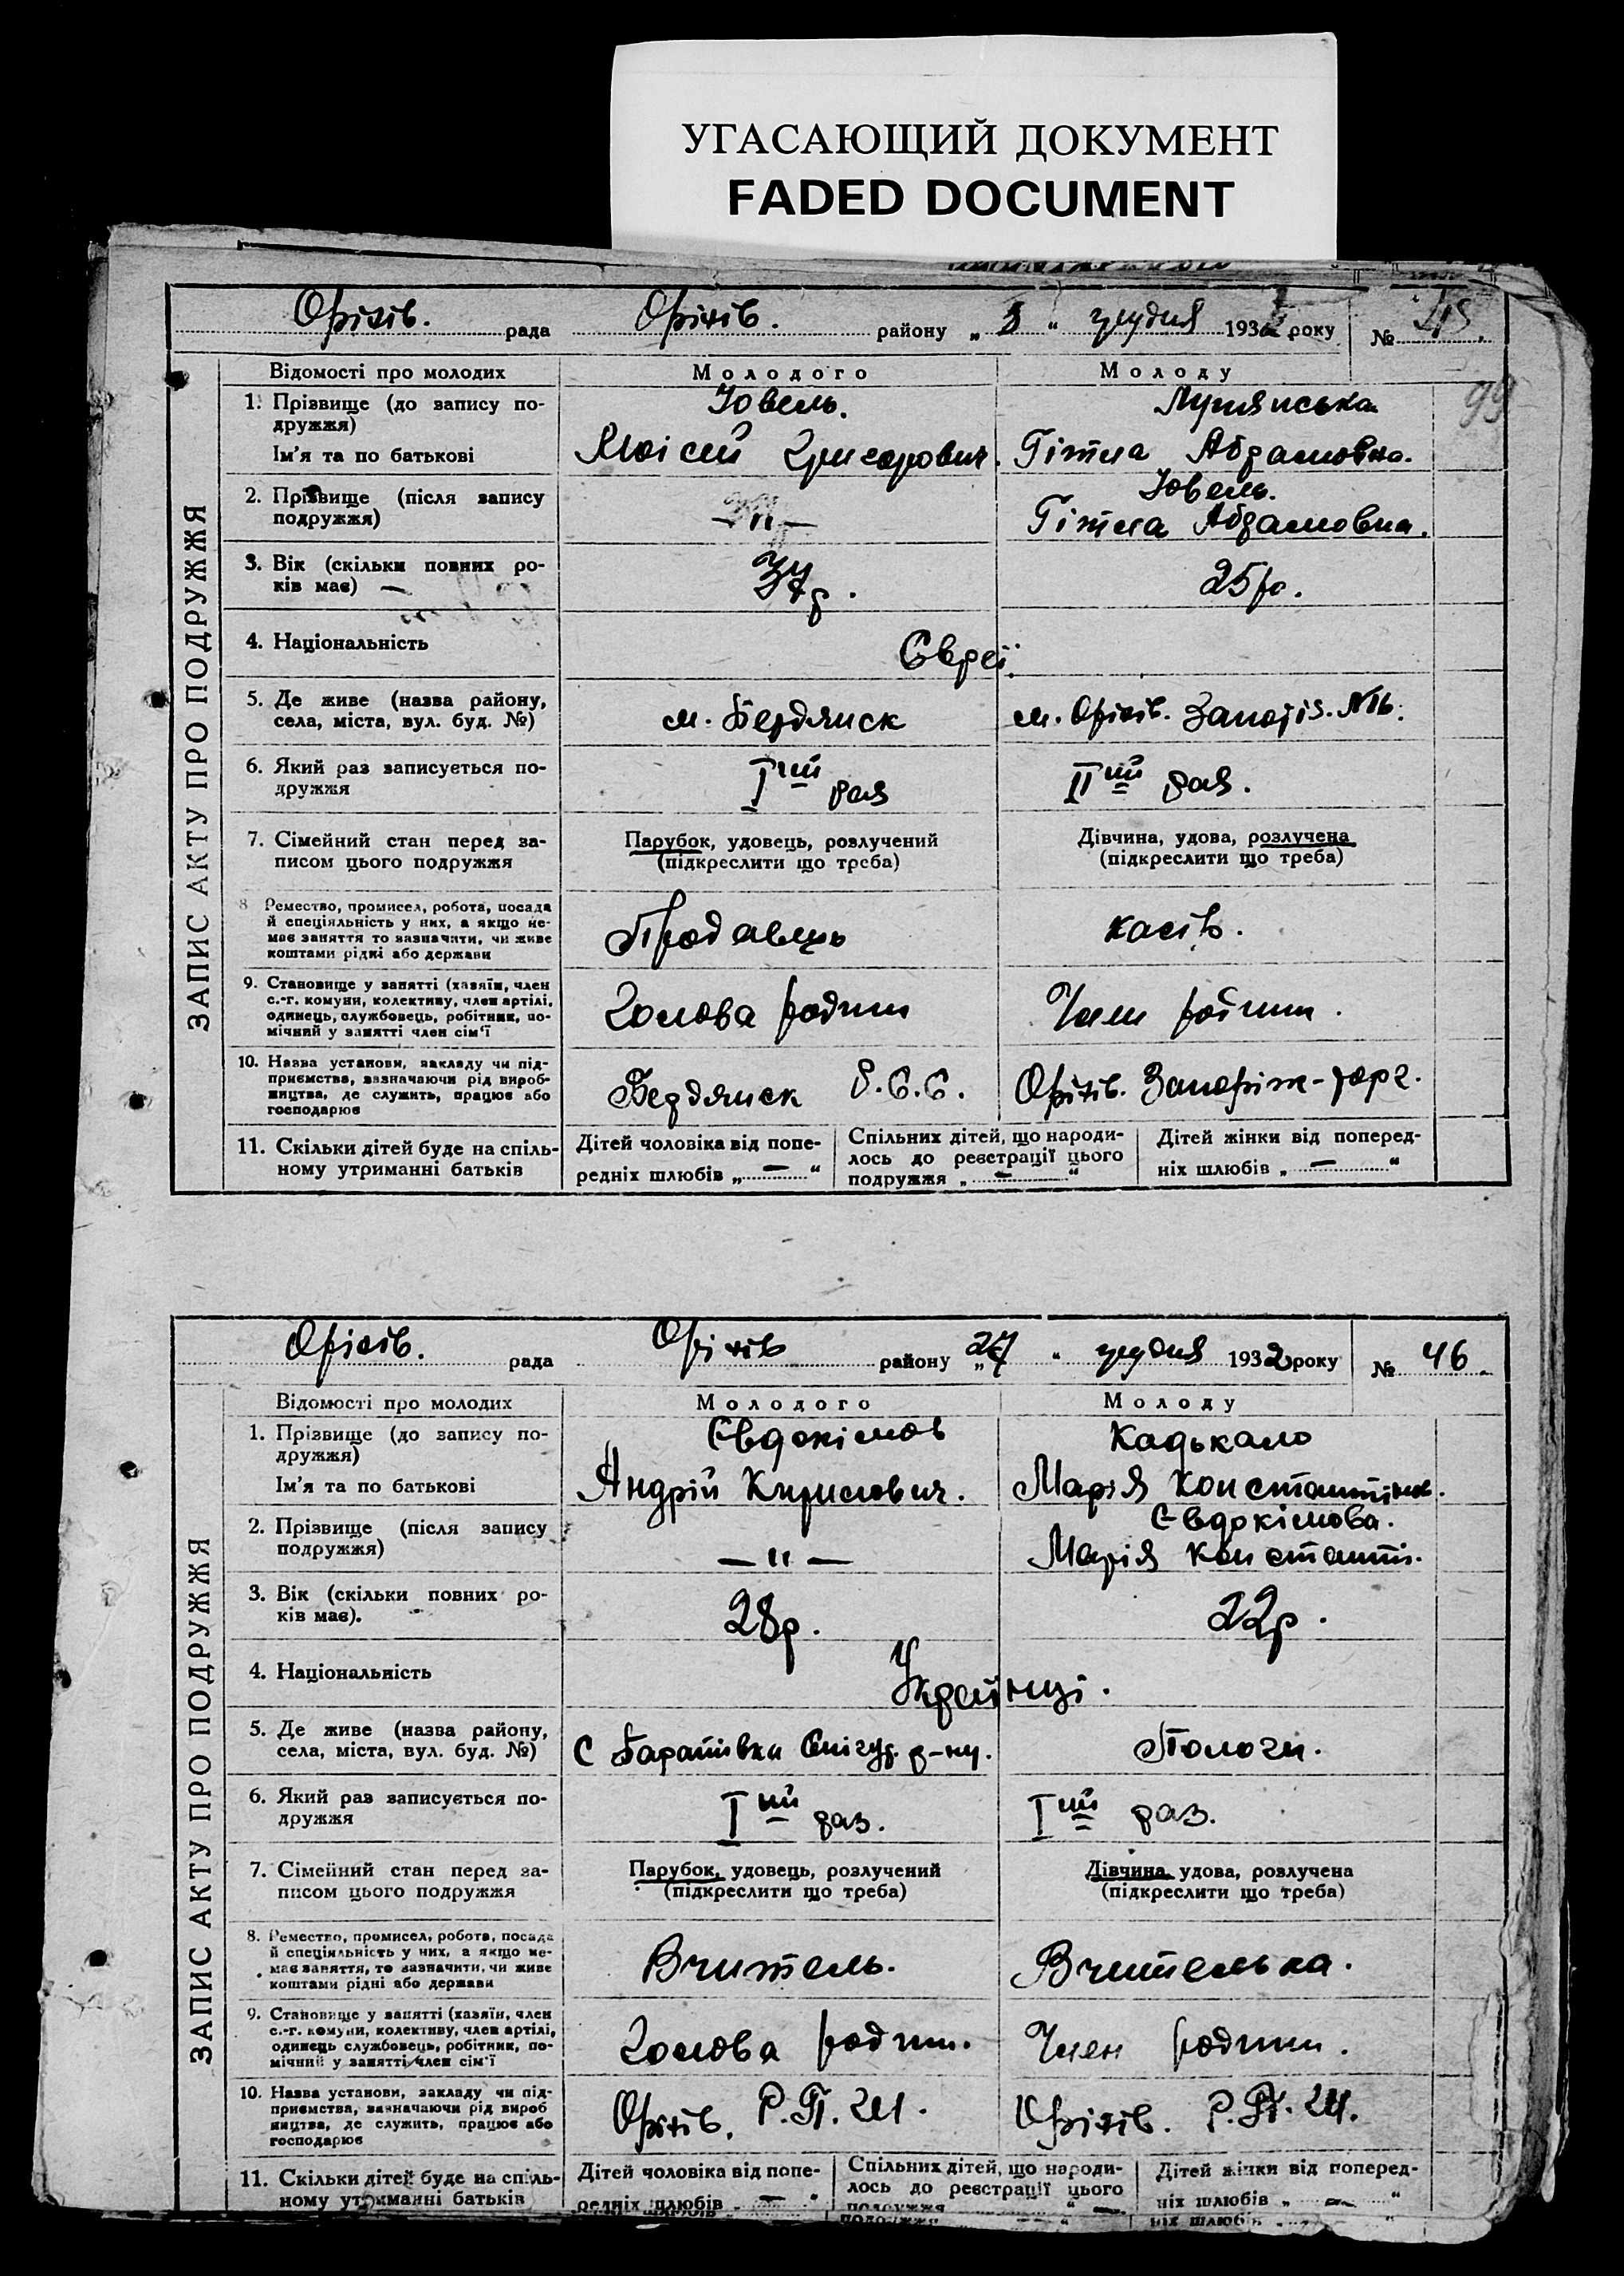 УГАСАЮЩИЙ ДОКУМЕНТ
FADED DOCUMENT
Оріхів. рада Оріхів. району „ 3 “ грудня 1932 року № 45.
99
ЗАПИС АКТУ ПРО ПОДРУЖЖЯ
Відомості про молодих Молодого Молоду
1. Прізвище (до запису по-
дружжя)
Ім'я та по батькові
Ювель.
Моісей Григорович.
Гітла Абрамовна.
2. Прізвище (після запису
подружжя)
— " —
Ювель.
Гітла Абрамовна.
3. Вік (скільки повних ро-
ків має)
37р. 25р.
4. Національність
Євреї.
5. Де живе (назва району,
села, міста, вул. буд. №)
м. Бердянск м. Оріхів.
6. Який раз записується по-
дружжя
Iший раз IIший раз.
7. Сімейний стан перед за-
писом цього подружжя
Парубок, удовець, розлучений
(підкреслити що треба)
Дівчина, удова, розлучена
(підкреслити що треба)
8 Ремество, промисел, робота, посада
й спеціяльність у них, а якщо не-
має заняття то зазначити, чи живе
коштами рідні або держави
Продавець касів.
9. Становище у занятті (хазяїн, член
с.-г. комуни, колективу, член артілі,
одинець, службовець, робітник, по-
мічний у занятті член сім'ї
Голова родини Член родини.
10. Назва установи, закладу чи під-
приємства, зазначаючи рід вироб-
ництва, де служить, працює або
господарює
Бердянск Оріхів. Запоріж-торг.
11. Скільки дітей буде на спіль-
ному утриманні батьків
Дітей чоловіка від попе-
редніх шлюбів „ — “
Спільних дітей, що народи-
лось до реєстрації цього
подружжя „ — “
Дітей жінки від поперед-
ніх шлюбів „ — “
Оріхів. рада Оріхів району „ 27 “ грудня 1932 року № 46.
ЗАПИС АКТУ ПРО ПОДРУЖЖЯ
Відомості про молодих Молодого Молоду
1. Прізвище (до запису по-
дружжя)
Ім'я та по батькові
Євдокімов
Андрій Кирилович.
Кадькало
Марія Константінов.
2. Прізвище (після запису
подружжя)
— " —
Євдокімова.
Марія Константі.
3. Вік (скільки повних ро-
ків має).
28р. 22р.
4. Національність
Українці.
5. Де живе (назва району,
села, міста, вул. буд. №)
С Баратівки Снігур. р-ну. Пологи.
6. Який раз записується по-
дружжя
Iший раз. Iший раз.
7. Сімейний стан перед за-
писом цього подружжя
Парубок, удовець, розлучений
(підкреслити що треба)
Дівчина, удова, розлучена
(підкреслити що треба)
8. Ремество, промисел, робота, посада
й спеціяльність у них, а якщо не-
має заняття, то зазначити, чи живе
коштами рідні або держави
Вчитель. Вчителька.
9. Становище у занятті (хазяїн, член
с.-г. комуни, колективу, член артілі,
одинець службовець, робітник, по-
мічний у занятті член сім'ї
Голова родини. Член родини.
10. Назва установи, закладу чи під-
приємства, зазначаючи рід вироб
ництва, де служить, працює або
господарює
Оріхів. Оріхів.
11. Скільки дітей буде на спіль-
ному утриманні батьків
Дітей чоловіка від попе-
редніх шлюбів „ — “
Спільних дітей, що народи-
лось до реєстрації цього
подружжя „ — “
Дітей жінки від поперед-
ніх шлюбів „ — “